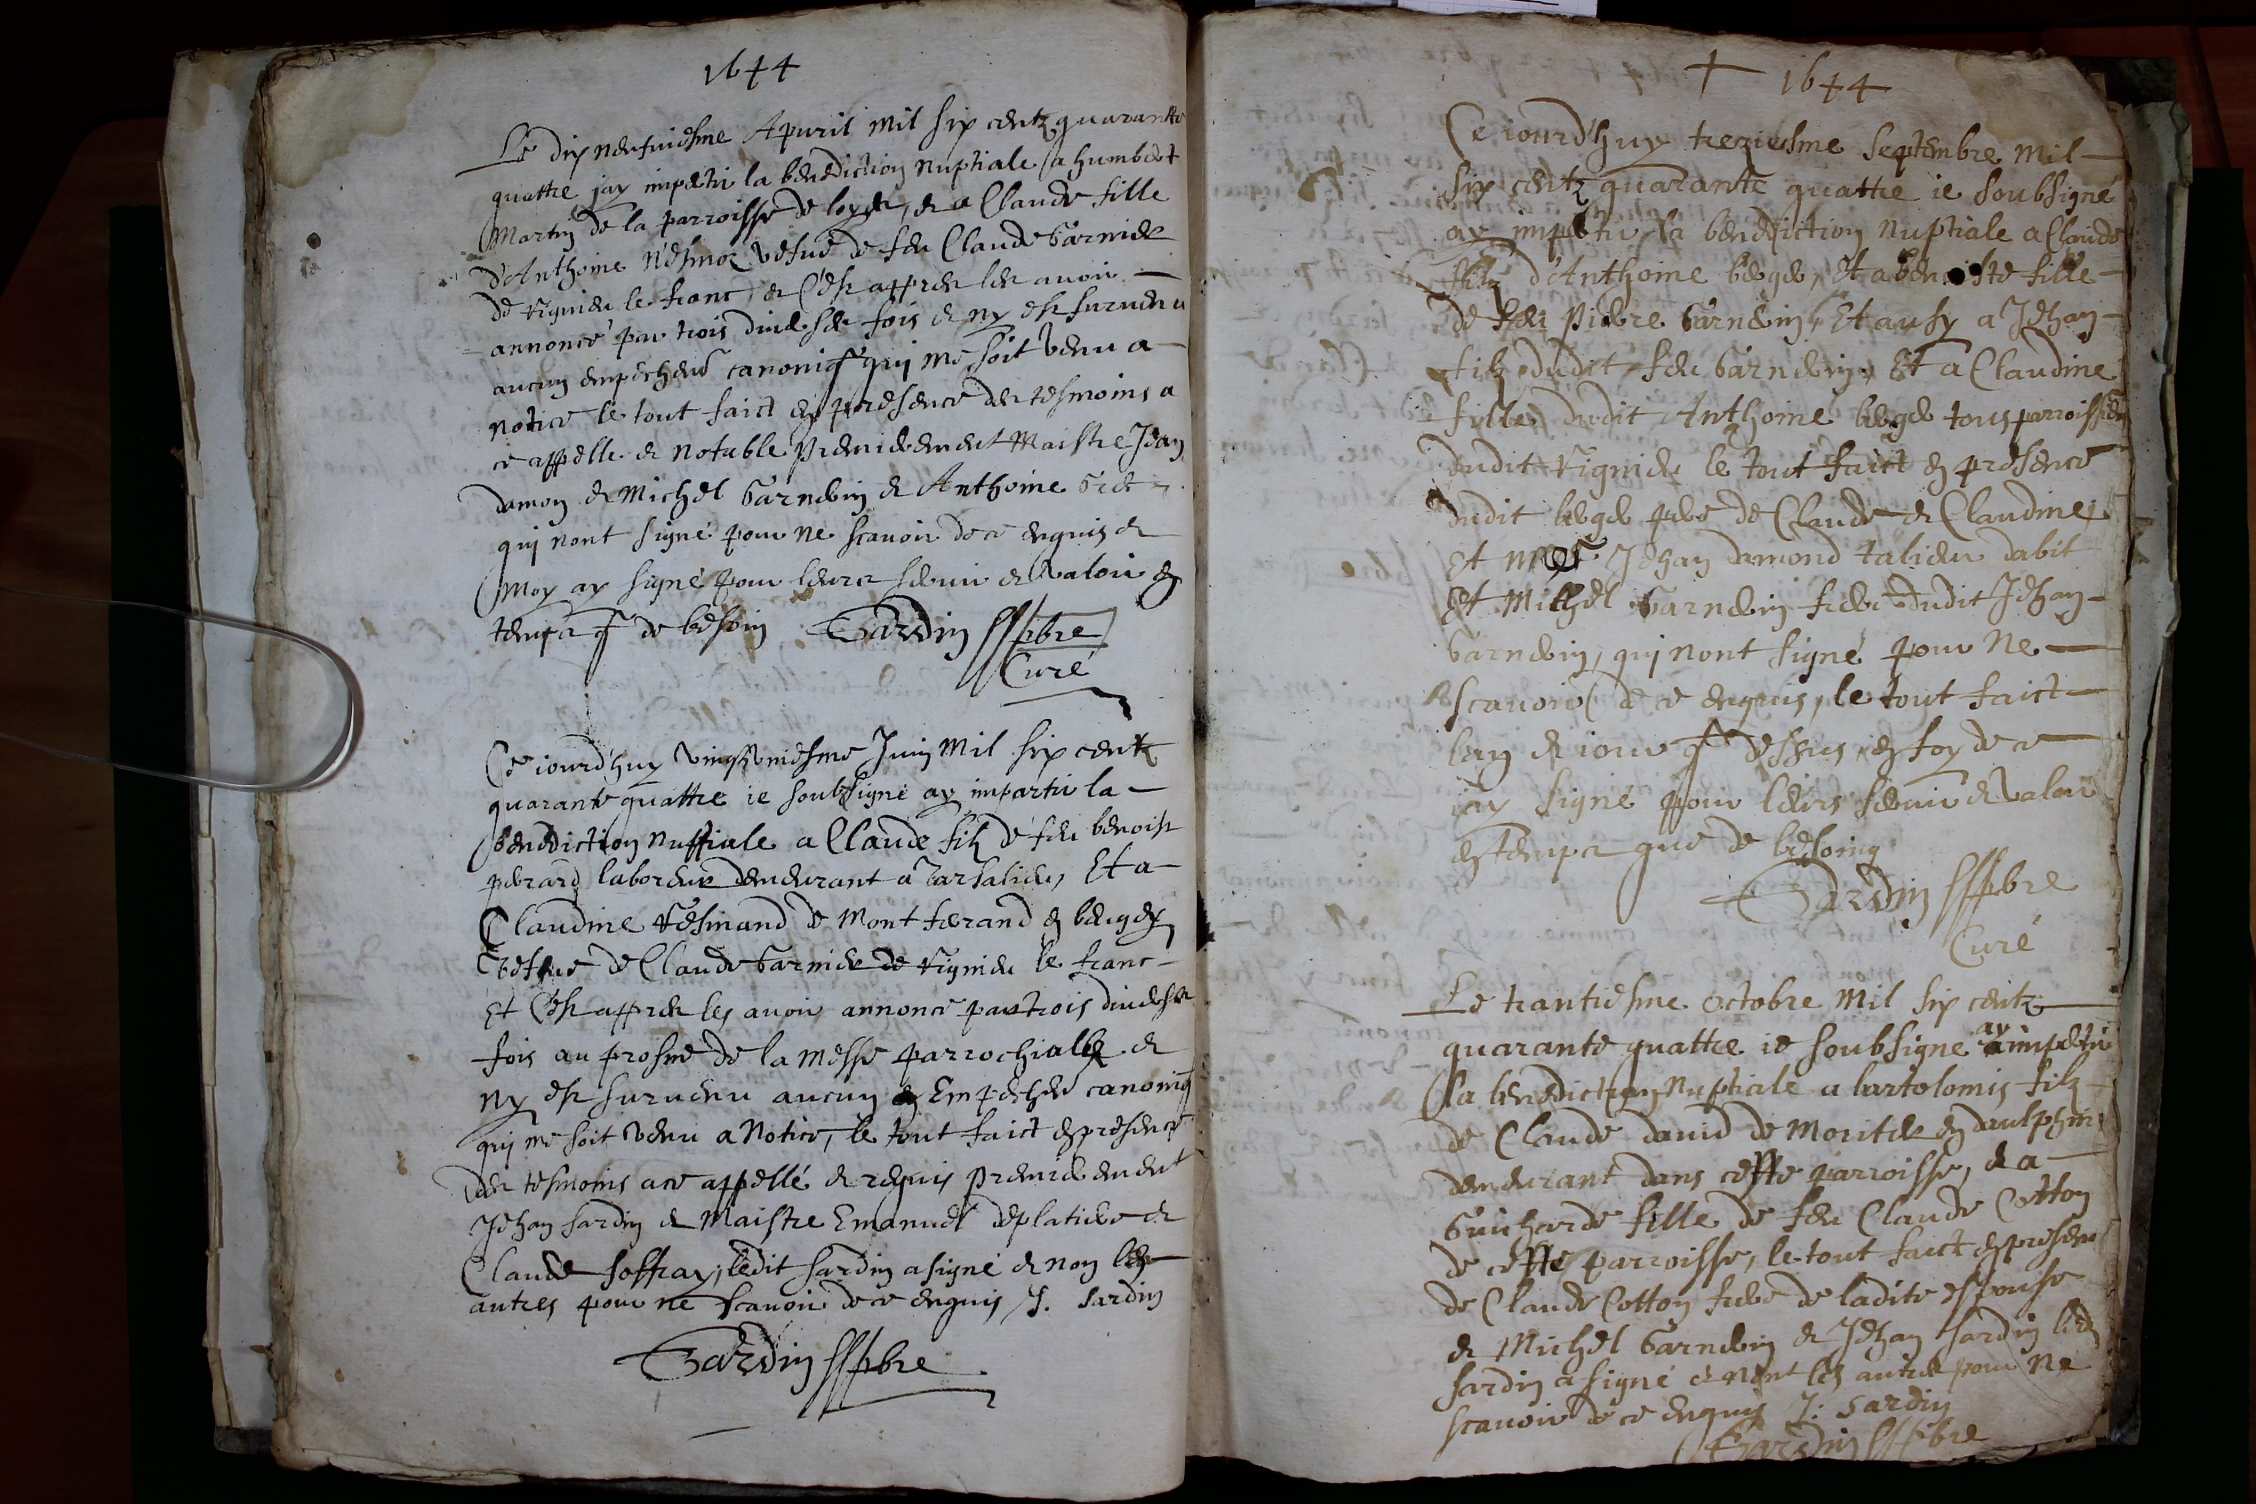 1644
Le dix neufuiesme Apuril mil six centz quarante
quattre jay imperti la benediction nuptiale a humbert
Martin de la parroisse de loyes, et a Claude fille
d'Anthoine vefue de feu Claude Garnier
de Vignieu le franc, et c'est appres les auoir
annoncé par trois diuerses fois et ny est suruenu
aucun empeschem canoniq qui me soit venu a
notice le tout faict en presence des tesmoins a
ce appellé et notable premierement Maistre Jean
damon et Michel Garneuin et Anthoine
qui nont signé pour ne scauoir de ce enquis et
Moy ay signé pour leurs seruir et valoir en
temps q de besoin Sardin pbre
Curé
Ce iourd'huy vingt vniesme Juin mil six centz
quarante quattre ie soubsigné ay imparti la
benediction nuptiale a Claude filz de feu benoist
perard laboreur demeurant a Et a
Claudine de Mont ferand en beugey
vefue de Claude Garnier de Vignieu le franc
Et c'est appres les auoir annoncé par trois diuerses
fois au prosne de la messe parrochialle et
ny est suruenu aucun Empeschem canoniq
qui me soit venu a notice, le tout faict en presence
des tesmoins a ce appellé et requis premierement
Jehan sardin et Maistre Emanuel deplatiere et
Claude soffray, ledit sardin a signé et non les
autres pour ne scauoir de ce enquis J. sardin
Sardin pbre
1644
Ce iourd'huy treziesme septembre mil
six centz quarante quattre ie soubsigné
ay imperti la benediction nuptiale a Claude
filz d'Anthoine berger, Et a benoiste fille
de feu Pierre Garneuin, Et ausy a Jehan
filz dudit feu Garneuin, Et a Claudine
fille dudit Anthoine berger tous parroissiens
dudit Vignieu le tout faict en presence
dudit berger pere de Claude et Claudine
Et Jehan damond talieur dabit
Et Michel Garneuin frere dudit Jehan
Garneuin, qui nont signé pour ne
scauoir de ce enquis, le tout faict
lan et iour q dessus en foy de ce
iay signé pour leurs seruir et valoir
en temps que de besoing
Sardin pbre
Curé
Le trantiesme octobre mil six centz
quarante quattre ie soubsigne ay imperti
la benediction nuptiale a bartolomis filz
de Claude dauid de en daulphine
demeurant dans cette parroisse, et a
Guicharde fille de feu Claude Cotton
de cette parroisse, le tout faict en presence
de Claude Cotton frere de ladite espouse
et Michel Garneuin et Jehan sardin
sardin a signé et nont les autres pour ne
scauoir de ce enquis J: sardin
Sardin pbre